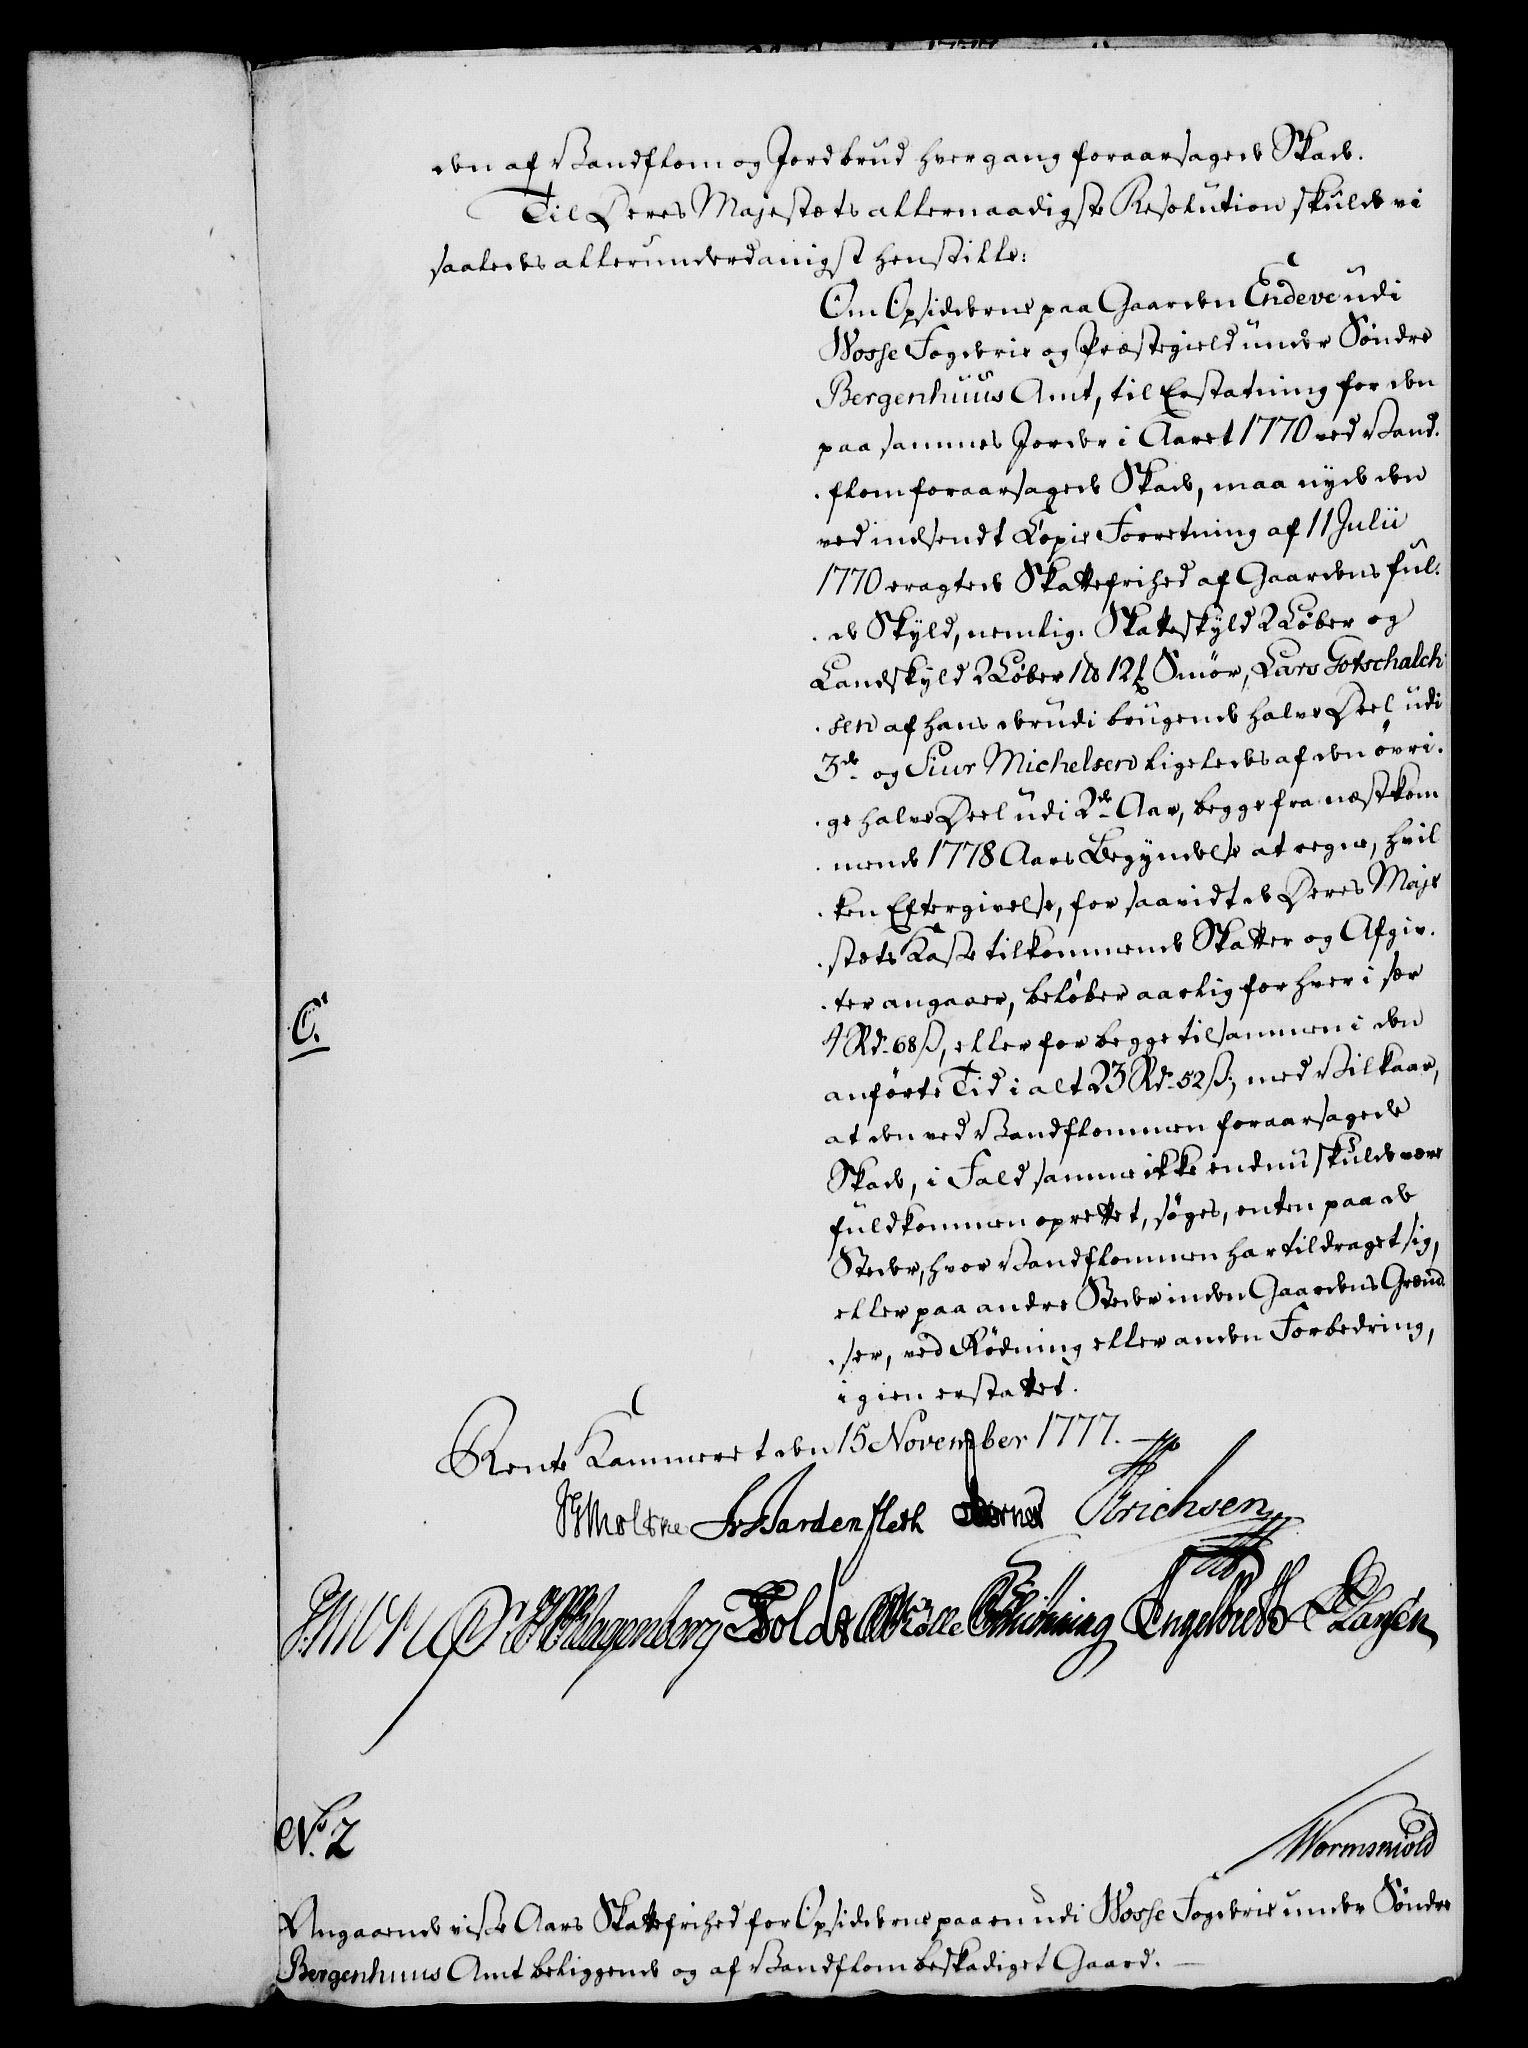 den af Vandflom og Jordbrud hvergang foraarsagede Skade.
Til Deres Majestæts allernaadigste Resolution skulde vi
saaledes allerunderdanigst henstille:
Om Opsidderne paa Gaarden Endeve udi
Wosse Fogderie og Præstegield under Søndre
Bergenhuus Amt, til Erstatning for den
paa sammes Jorder i Aaret 1770 ved Vand-
flom foraarsagede Skade, maa nyde den
ved indsendt Copie Forretning af 11 Julii
1770 eragtede Skattefrihed af Gaardens ful-
de Skyld, nemlig: Skatteskyld 2 Løber og
Landskyld 2 Løber 1 12 Smør, Lars Gotschalch
sen af hans derudi brugende halve Deel udi
3de og Siur Michelsen ligeledes af den øvri-
ge halve Deel udi 2de Aar, begge fra næstkom
mende 1778 Aars Begyndelse at regne, hvil
ken Eftergivelse, for saavidt de Deres Maje
stæts Kasse tilkommende Skatter og Afgiv-
ter angaaer, beløber aarlig for hver i sær
4 Rd. 68 ß, eller for begge tilsammen i den
anførte Tid i alt 23 Rd. 52 ß; med Vilkaar,
at den ved Vandflommen foraarsagede
Skade, i Fald samme ikke endnu skulde være
fuldkommen oprettet, søges, enten paa de
Steder, hvor Vandflommen har tildraget sig,
eller paa andre Steder inden Gaardens Grænd
ser, ved Rødning eller anden Forbedring,
igien erstattet.
C.
Rente Kammeret den 15 November 1777.
Moltke Bardenfleth Erichsen
Klagenberg Holdt Engelbreth Clausen
No. 2
Wormskiold
Angaaende visse Aars Skattefrihed for Opsidderne paa en udi Wosse Fogderie under Søndre
Bergenhuus Amt beliggende og af Vandflom beskadiget Gaard.